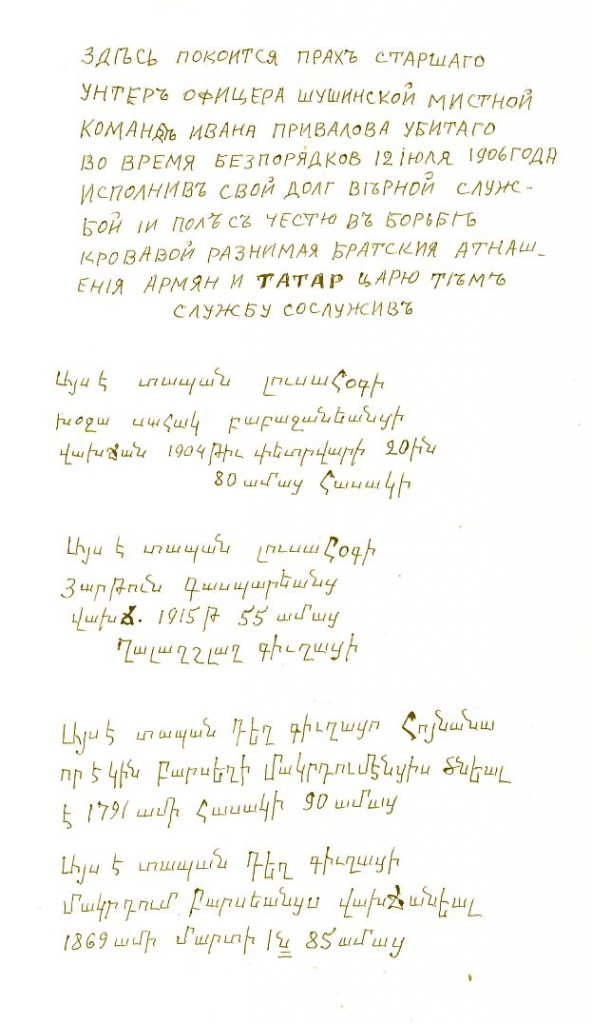 ЗДѢСЬ ПОКОИТСЯ ПРАХЪ СТАРШАГО
УНТЕРЪ ОФИЦЕРА ШУШИНСКОЙ МИСТНОЙ
КОМАНДЪ ИВАНА ПРИВАЛОВА УБИТАГО
ВО ВРЕМЯ БЕЗПОРЯДКОВ 12 IЮЛЯ 1906 ГОДА
ИСПОЛНИВЪ СВОЙ ДОЛГ ВѢРНОЙ СЛУЖ-
БОЙ IИ ПОЛЪ СЪ ЧЕСТЮ ВЪ БОРЬБѢ
КРОВАВОЙ РАЗНИМАЯ БРАТСКИЯ АТНАШ_
ЕНІЯ АРМЯН И ТАТАР ЦАРЮ ТѢМЪ
СЛУЖБУ СОСЛУЖИВЪ
Այս է տապան լուսաՀօգի
խօջա սահակ բաբաջանեանցի
վախճան 1904 թիւ փետրվարի 20ին
80 ամայ Հասակի
Այս է տապան լուսաՀօգի
Յարթուն Գասպարեանց
վախճ. 1915 թ 55 ամայ
Ղալաղշլաղ գիւղացի
Այս է տապան Դեղ գիւղացո Հոյնանա
որ է կին բարսեղի մակրդումէնցիս ծնեալ
է 1791 ամի Հասակի 90 ամայ
Այս է տապան Դեղ գիւղացի
մակրդում բարսեանցս վախճանեալ
1869 ամի մարտի 1ն 85 ամայ